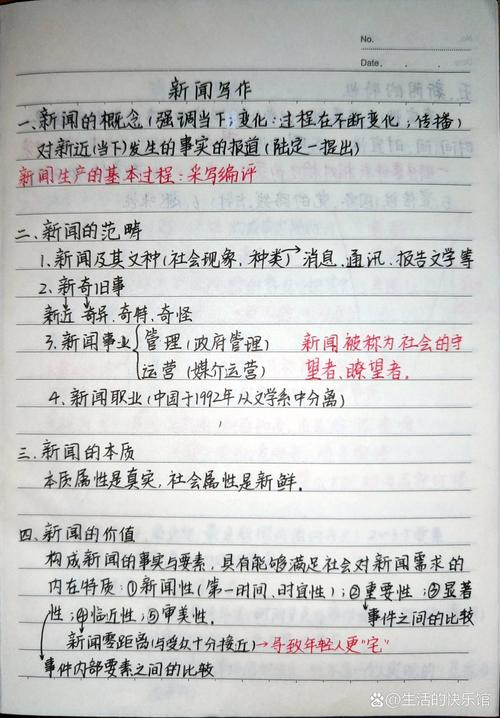 No.
Date
新闻写作
一、新闻的概念(强调当下;变化:过程在不断变化;传播)
对新近(当下)发生的事实的报道(陆定一提出)
新闻生产的基本过程:采写编评
二、新闻的范畴
1、新闻及其文种(社会现象,种类)→消息、通讯、报告文学等
2、新奇旧事
新近 奇异、奇特、奇怪
3、新闻事业 管理(政府管理) 新闻被称为社会的守
运营(媒介运营) 望者、瞭望者。
4、新闻职业(中国于1992年从文学系中分离)
三、新闻的本质
本质属性是真实,社会属性是新鲜。
四、新闻的价值
构成新闻的事实与要素,具有能够满足社会对新闻需求的
内在特质:①新闻性(第一时间、时宜性);②重要性;③显著
性;④临近性;⑤审美性。 事件之间的比较
新闻零距离(与受众十分接近)→导致年轻人更"宅"
事件内部要素之间的比较
@生活的快乐馆